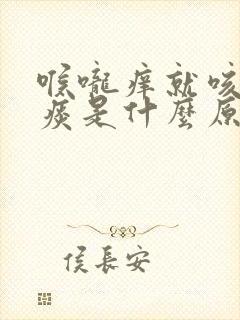 喉嚨痒就咳
痰是什麼原
侯長安